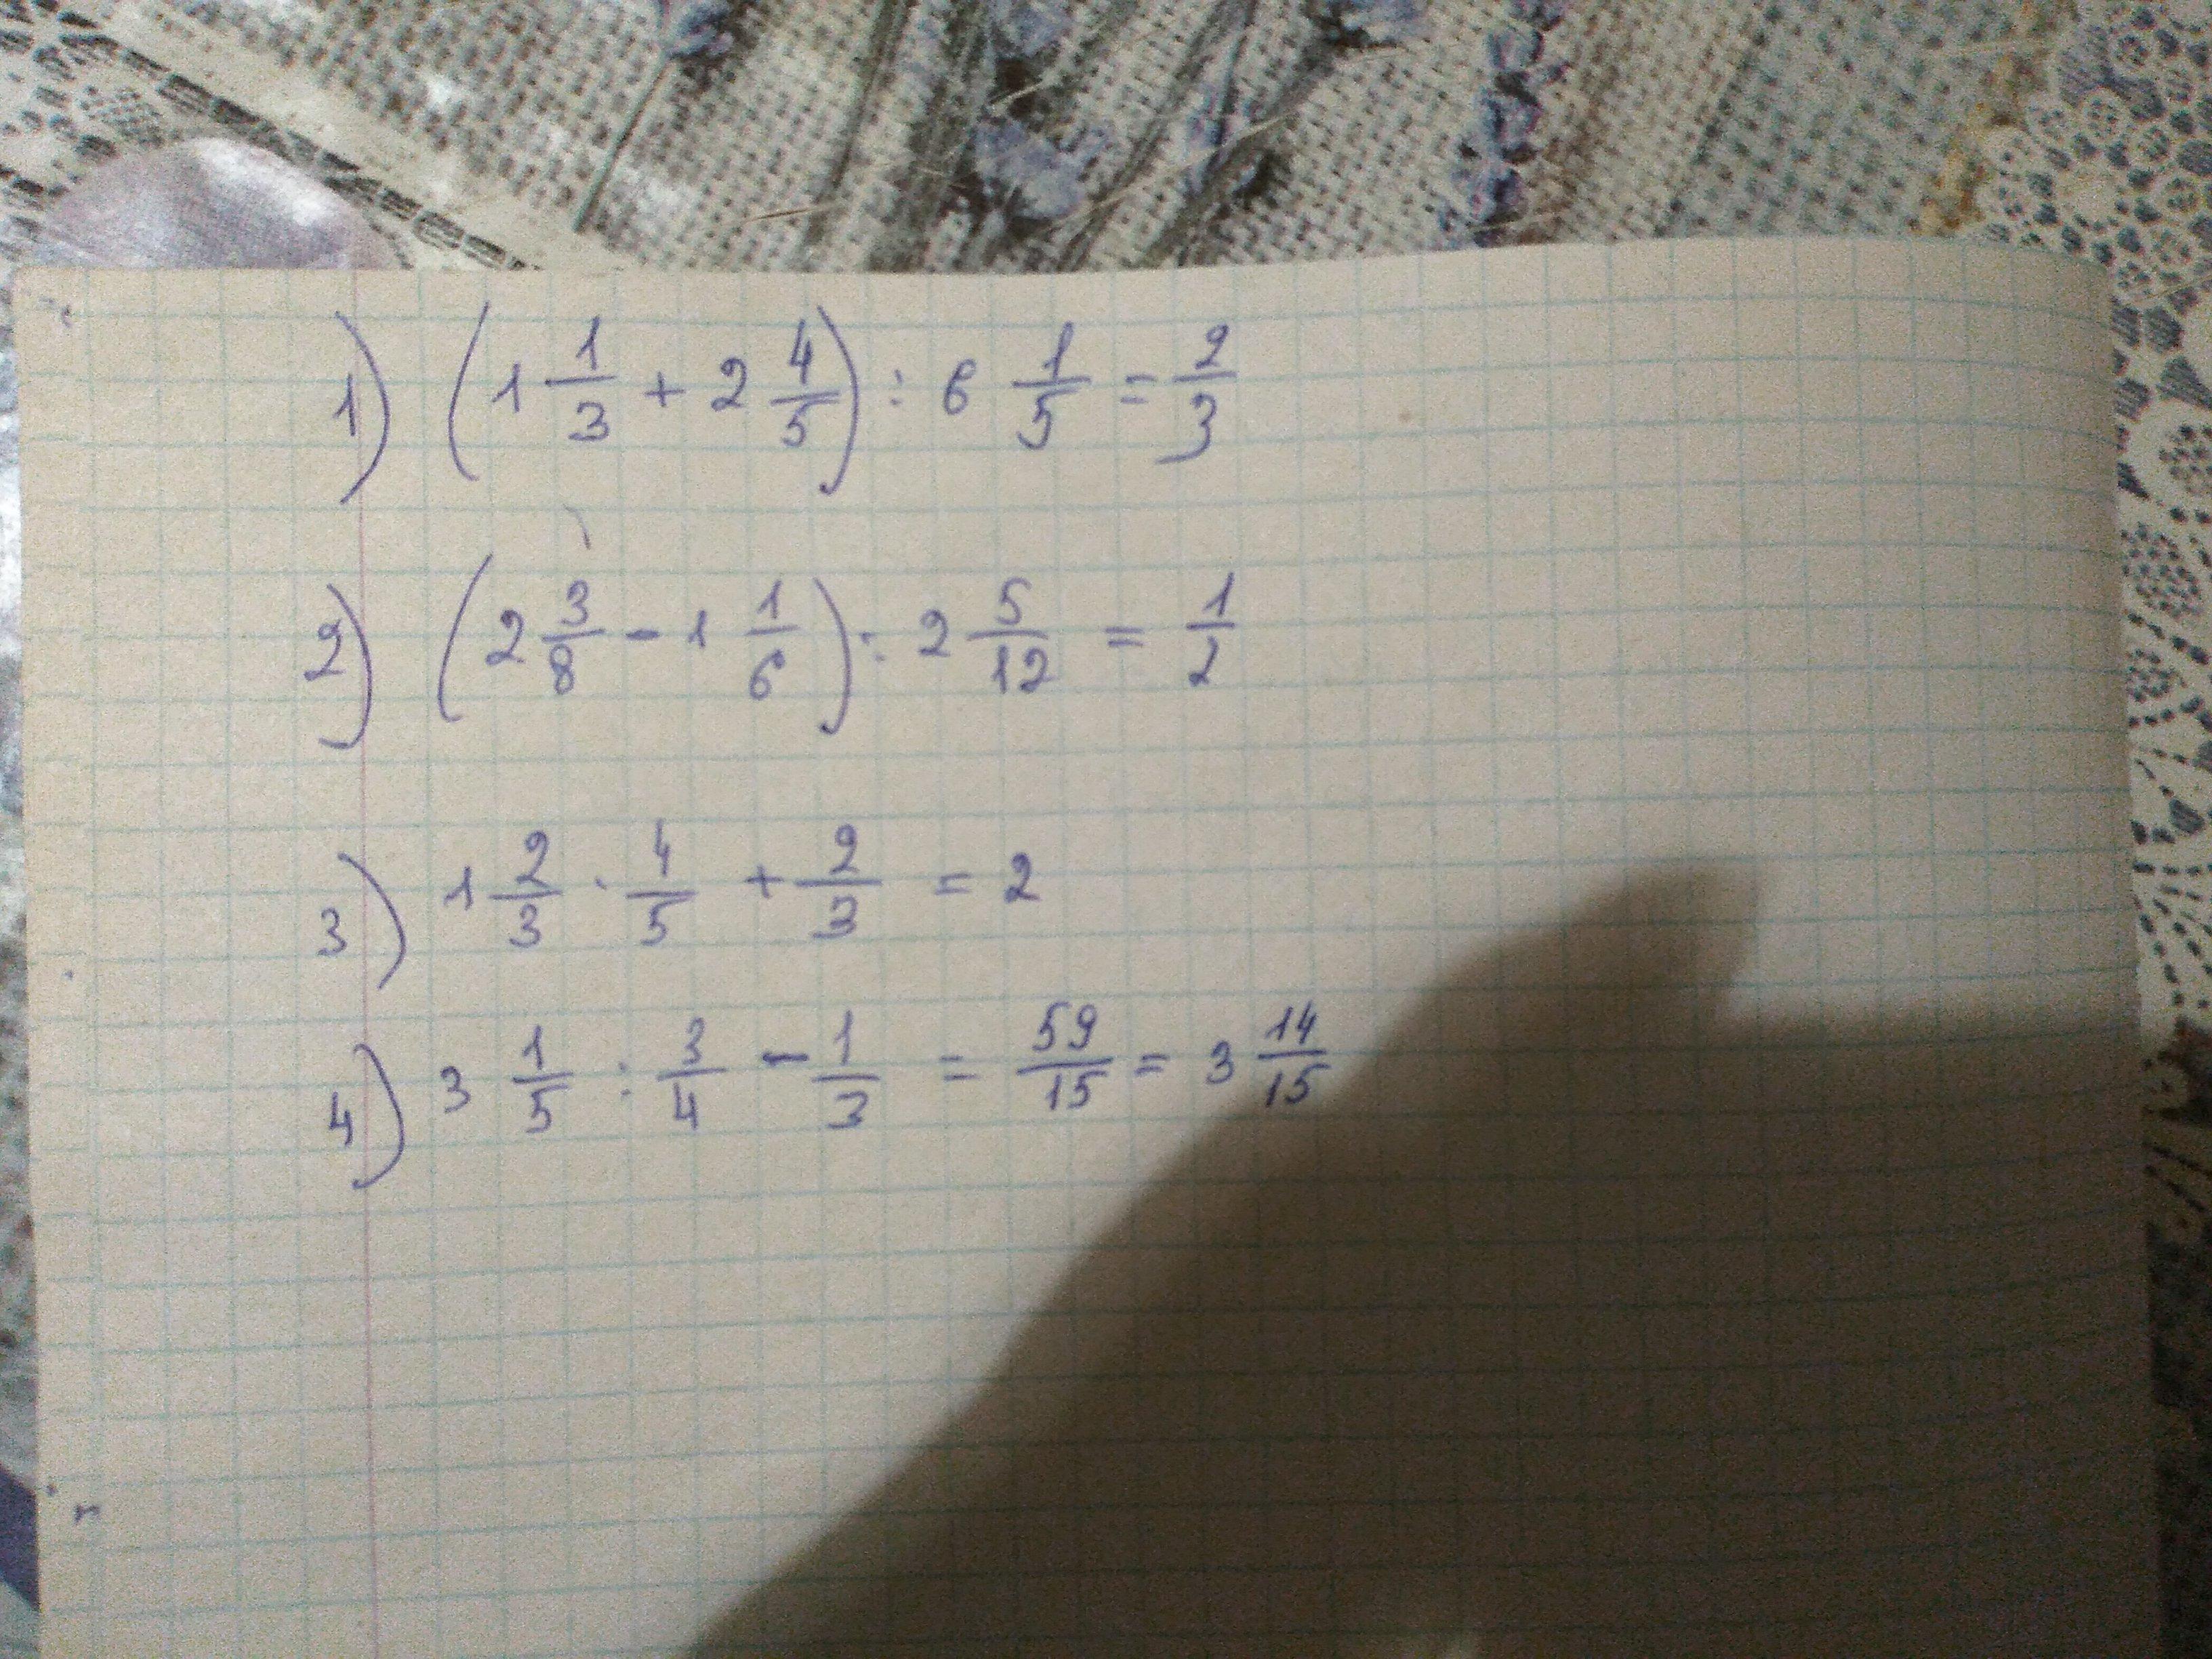 1) (1 1/3 + 2 4/5) : 6 1/5 = 2/3
2) (2 3/8 - 1 1/6) : 2 5/12 = 1/2
3) 1 2/3 · 4/5 + 2/3 = 2
4) 3 1/5 : 3/4 - 1/3 = 59/15 = 3 14/15